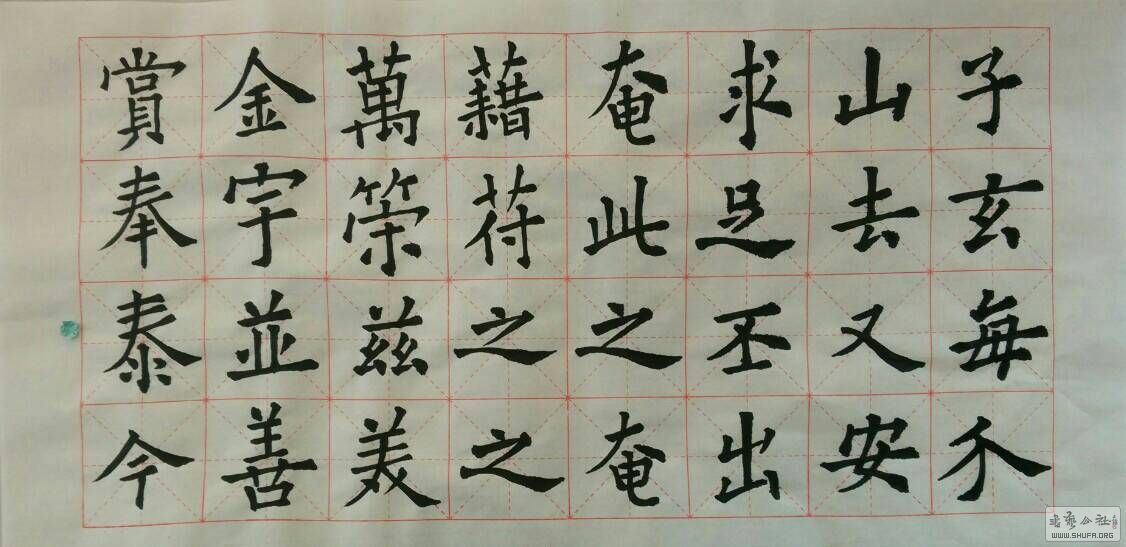 子玄每尒
山去又安
求足丕出
奄此之奄
藉苻之之
萬策兹美
金宇並善
賞奉泰今
书艺公社
WWW.SHUFA.ORG